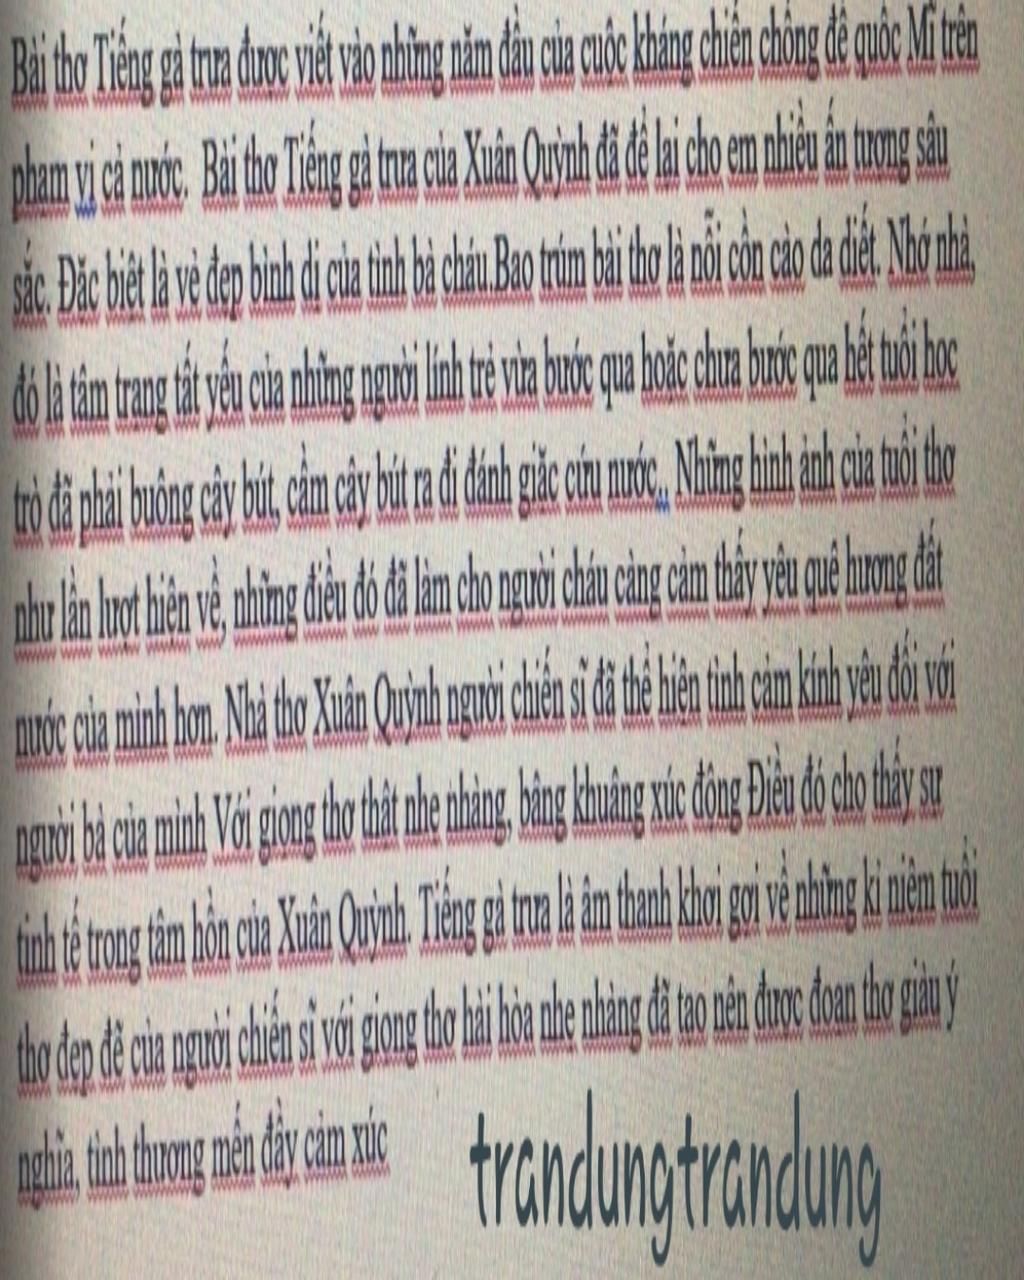 Bài thơ Tiếng gà trưa được viết vào những năm đầu của cuộc kháng chiến chống đế quốc Mĩ trên
phạm vi cả nước. Bài thơ Tiếng gà trưa của Xuân Quỳnh đã để lại cho em nhiều ấn tượng sâu
sắc. Đặc biệt là vẻ đẹp bình dị của tình bà cháu.Bao trùm bài thơ là nỗi cồn cào da diết. Nhớ nhà,
đó là tâm trạng tất yếu của những người lính trẻ vừa bước qua hoặc chưa bước qua hết tuổi học
trò đã phải buông cây bút, cầm cây bút ra đi đánh giặc cứu nước,. Những hình ảnh của tuổi thơ
như lần lượt hiện về, những điều đó đã làm cho người cháu càng cảm thấy yêu quê hương đất
nước của mình hơn. Nhà thơ Xuân Quỳnh người chiến sĩ đã thể hiện tình cảm kính yêu đối với
người bà của mình Với giọng thơ thật nhẹ nhàng, bâng khuâng xúc động Điều đó cho thấy sự
tinh tế trong tâm hồn của Xuân Quỳnh. Tiếng gà trưa là âm thanh khơi gợi về những kỉ niệm tuổi
thơ đẹp đẽ của người chiến sĩ với giọng thơ hài hòa nhẹ nhàng đã tạo nên được đoạn thơ giàu ý
nghĩa, tình thương mến đầy cảm xúc
trandungtrandung